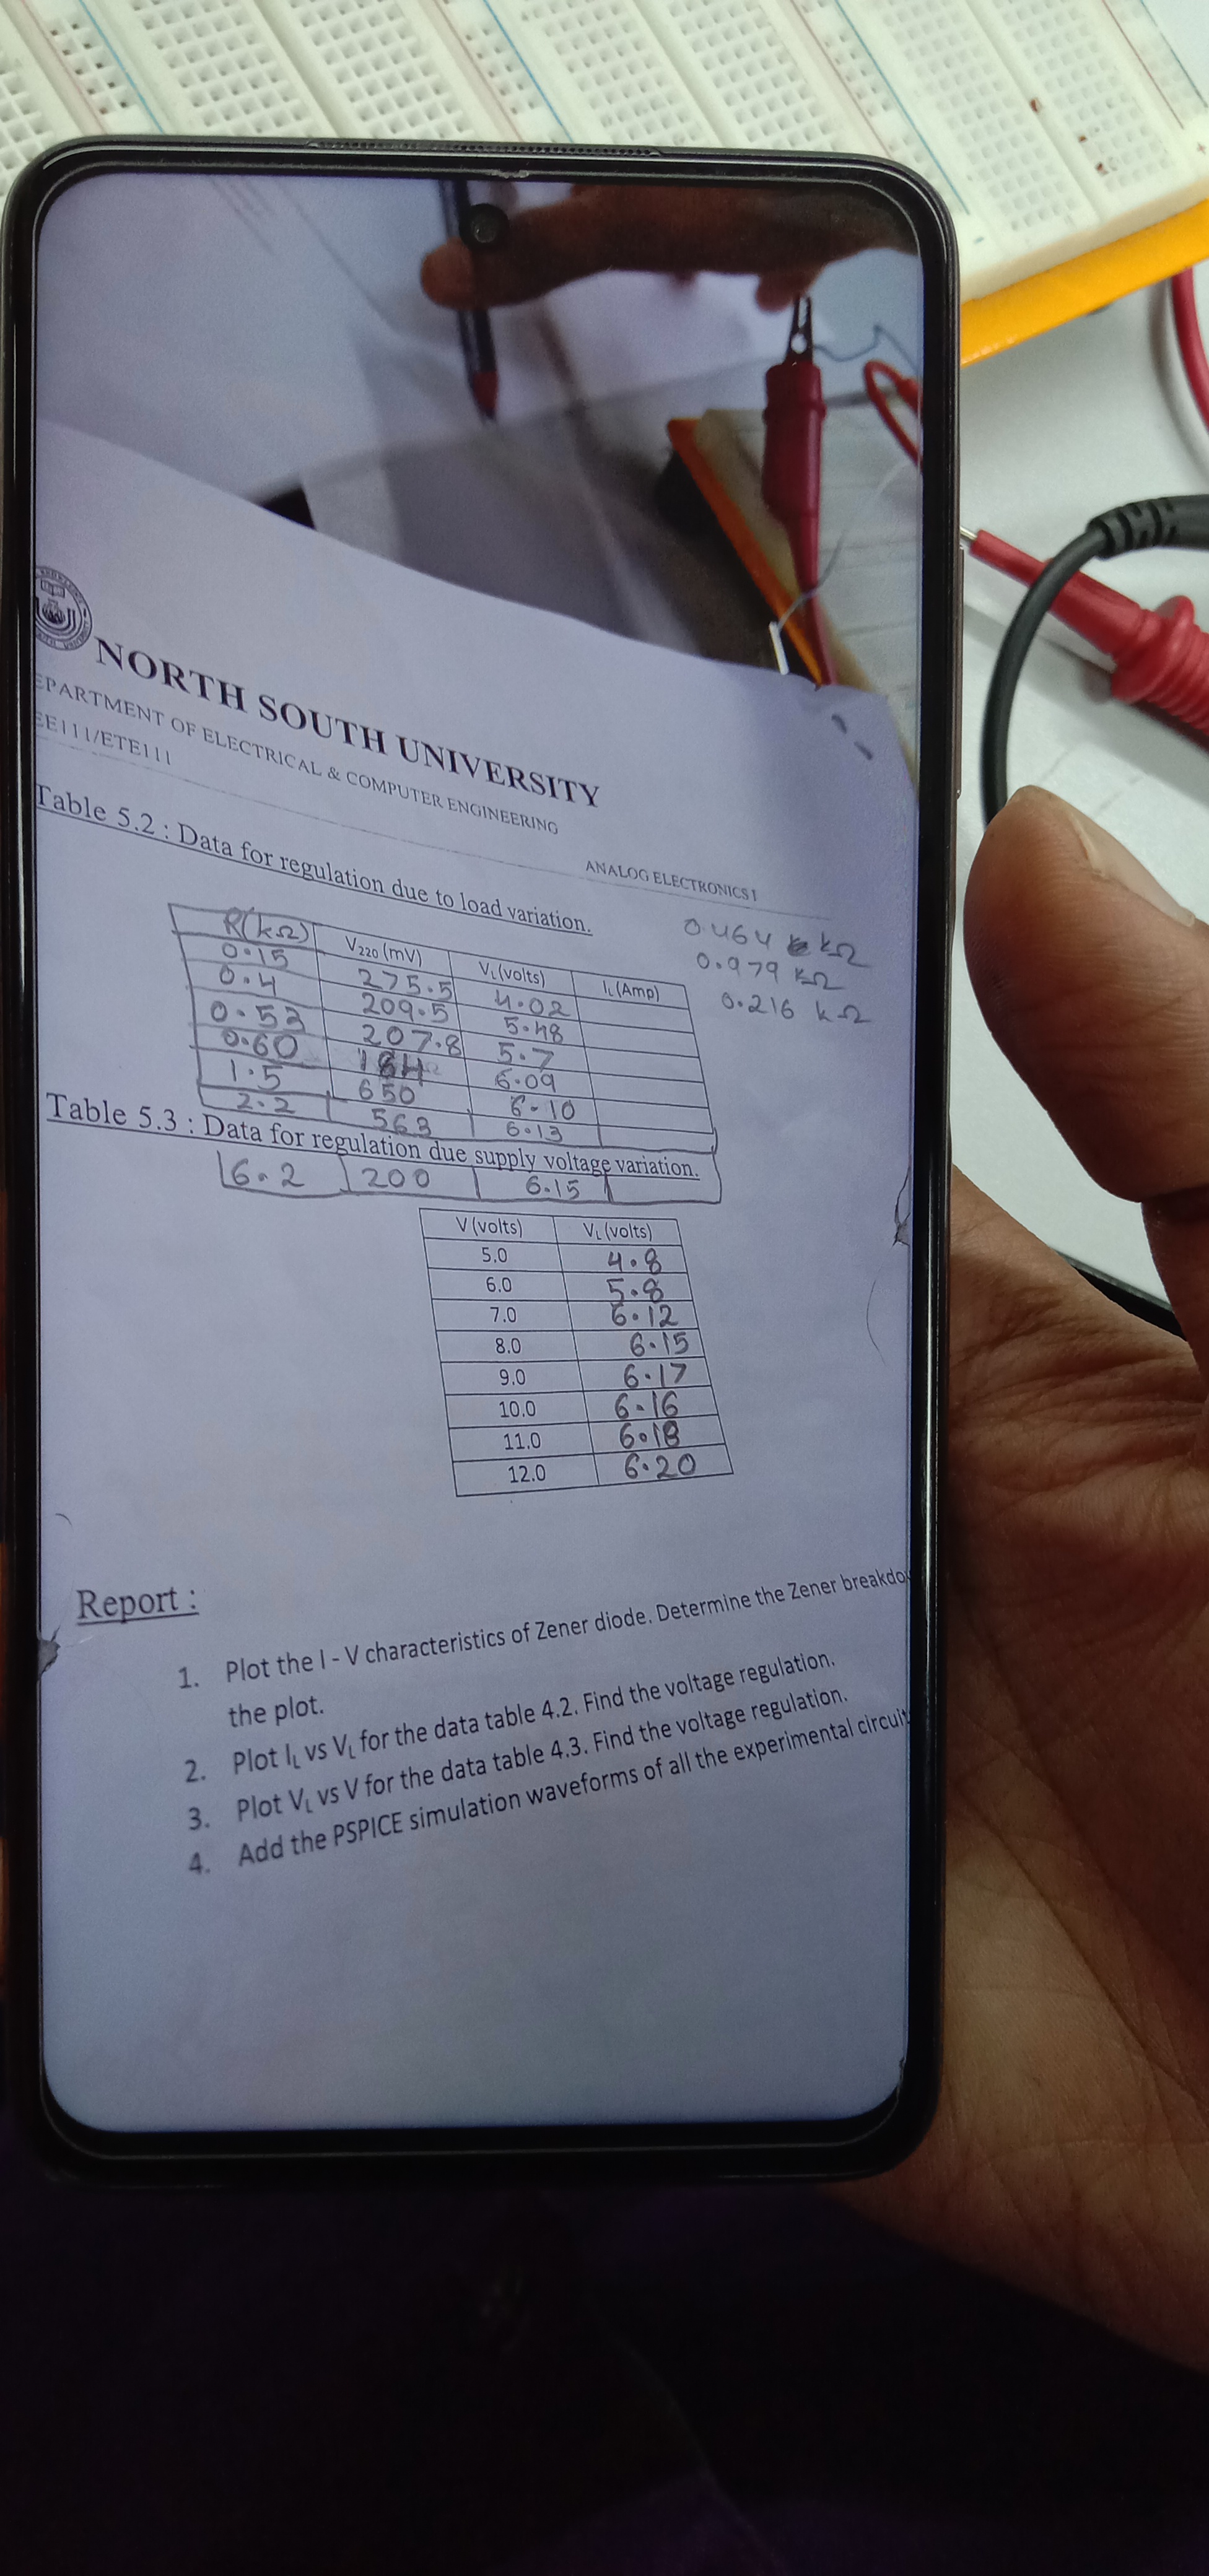 NORTH SOUTH UNIVERSITY
EPARTMENT OF ELECTRICAL & COMPUTER ENGINEERING
EE111/ETE111
ANALOG ELECTRONICS I
Table 5.2 : Data for regulation due to load variation.
R(kΩ) V220 (mV) VL (volts) IL (Amp)
0.15 275.5 4.02
0.4 209.5 5.48
0.53 207.8 5.7
0.60 184 6.09
1.5 650 6.10
2.2 563 6.13
0.464 kΩ
0.979 kΩ
0.216 kΩ
Table 5.3 : Data for regulation due supply voltage variation.
6.2 200 6.15
V (volts) VL (volts)
5.0 4.8
6.0 5.8
7.0 6.12
8.0 6.15
9.0 6.17
10.0 6.16
11.0 6.18
12.0 6.20
Report :
1. Plot the I - V characteristics of Zener diode. Determine the Zener breakdo
the plot.
2. Plot IL vs VL for the data table 4.2. Find the voltage regulation.
3. Plot VL vs V for the data table 4.3. Find the voltage regulation.
4. Add the PSPICE simulation waveforms of all the experimental circuit